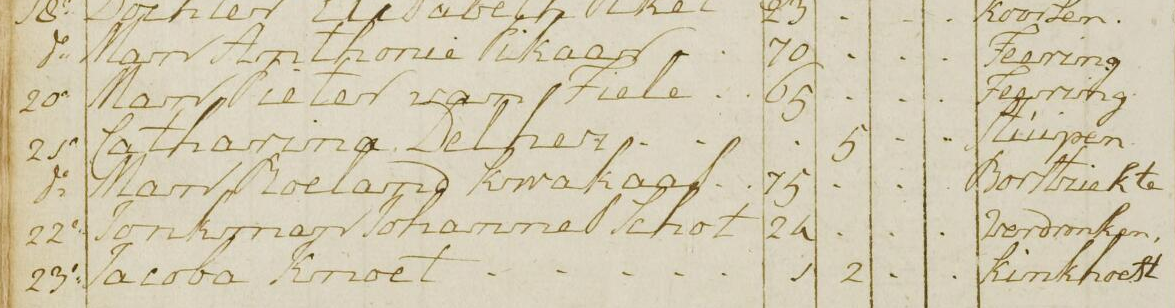 18„ Dochter Elisabeth Pikel 23 . . . Koorsen.
d„ Man Anthonie Pikaar . . 70 . . . Teering
20„ Man Pieter van Tiele . . 65 . . . Teering
21„ Catharina Delher . . . . 5 . . Stuipen
d„ Man Roeland Kwakaal . . 75 . . . Borstziekte
22„ Jonkman Johannes Schot 24 . . . Verdronken,
23„ Jacoba Knoet . . . . . 1 2 . . Kinkhoest